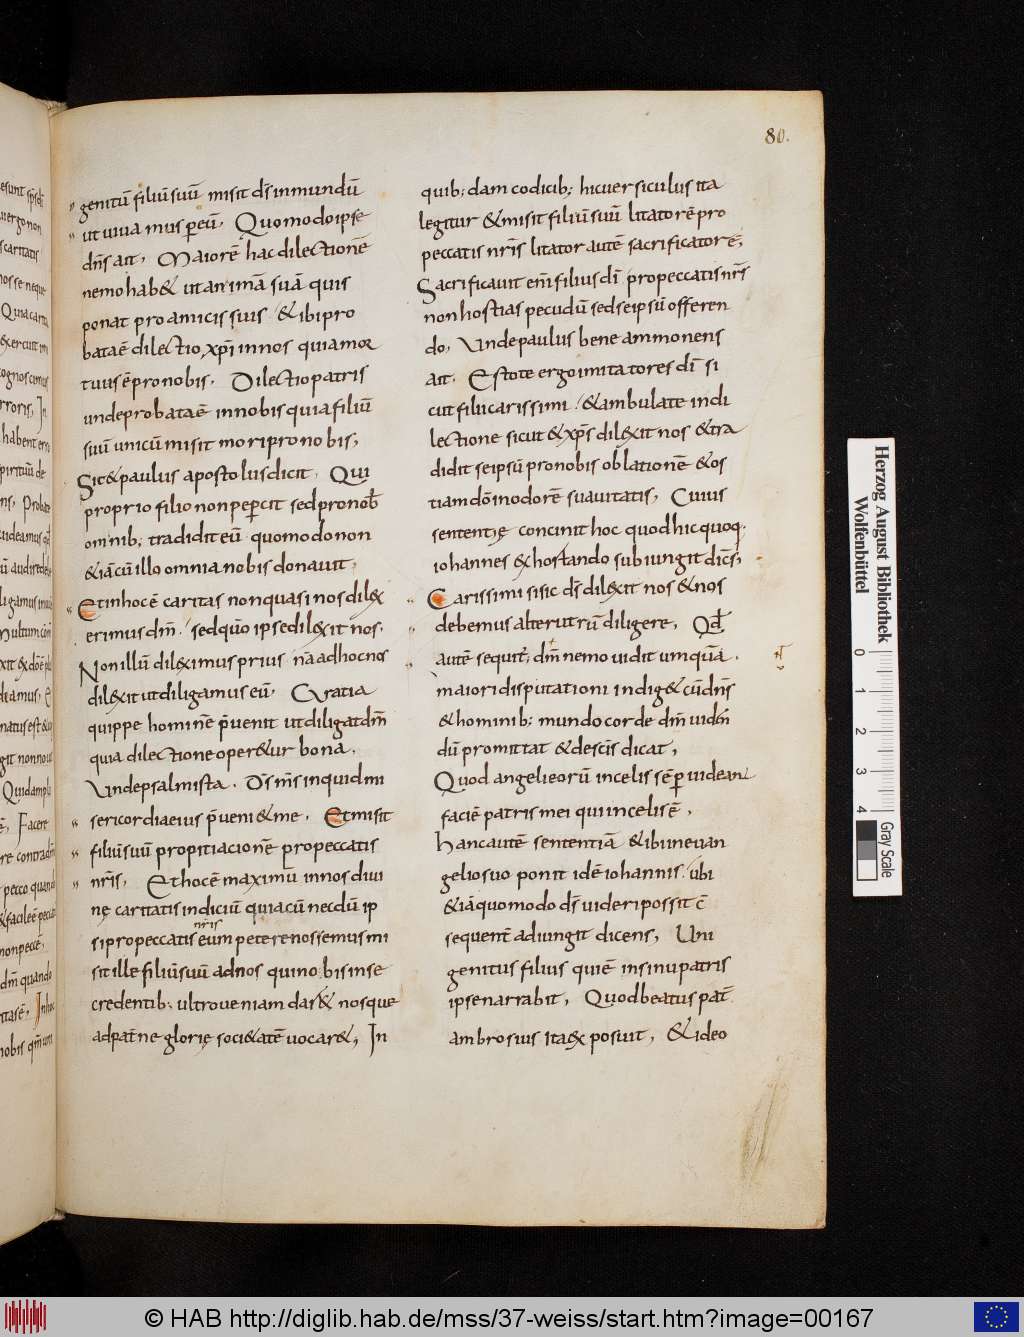 80.
genitū filiū suū misit d̄s in mundū
ut uiuamus ꝑ eū. Quomodo ipse
dn̄s ait. Maiorē hac dilectionē
nemo hab& ut animā suā quis
ponat pro amicis suis. & ibi pro
bata ē dilectio xp̄i in nos quia mor
tuus ē pro nobis. Dilectio patris
unde probata ē in nobis quia filiū
suū unicū misit mori pro nobis;
Sic & paulus apostolus dicit. Qui
proprio filio non peꝑcit sed pro nob̄
omnib; tradidit eū quomodo non
& iā cū illo omnia nobis donauit.
Et in hoc ē caritas non quasi nos dilex
erimus dm̄. sed quō ipse dil&xit nos.
Non illū dileximus prius nā ad hoc nos
dil&xit ut diligamus eū. Gratia
quippe hominē p̄uenit ut diligat dm̄
quia dilectione oper&ur bona.
Unde psalmista. Ds̄ ms̄ inquid mi
sericordia eius p̄ueni& me. Et misit
filiū suū propitiacionē pro peccatis
nr̄is. Et hoc ē maximū in nos diui
nę caritatis indiciū quia cū necdū ip
si pro peccatis nr̄is eum petere nossemus mi
sit ille filiū suū ad nos qui nobis in se
credentib; ultro ueniam dar& nosque
ad pat̄ne glorię soci&atē uocar&; In
quib;dam codicib; hic uersiculus ita
legitur & misit filiū suū litatorē pro
peccatis nr̄is litator autē sacrificatorē;
Sacrificauit em̄ filius dī pro peccatis nr̄s
non hostias pecudū sed se ipsū offeren
do. Unde paulus bene ammonens
ait. Estote ergo imitatores dī si
cut filii carissimi. & ambulate in di
lectione sicut & xp̄s dil&xit nos & tra
didit se ipsū pro nobis oblationē & os
tiam dō in odorē suauitatis; Cuius
sententię concinit hoc quod hic quoq;
iohannes exhortando subiungit dic̄s;
Carissimi si sic ds̄ dil&xit nos & nos
debemus alterutrū diligere. Qd̄
autē sequit̄; dm̄ nemo uidit umquā.
maiori disputationi indig& cū dn̄s
& hominib; mundo corde dm̄ uiden
dū promittat & de sc̄is dicat;
Quod angeli eorū in celis sēꝑ uidean
faciē patris mei qui in celis ē.
Hanc autē sententiā & ibi in euan
gelio suo ponit idē iohannis. ubi
& iā quomodo ds̄ uideri possit c̄
sequent̄ adiungit dicens; Uni
genitus filius qui ē in sinu patris
ipse narrabit. Quod beatus pat̄
ambrosius ita exposuit. & ideo
Herzog August Bibliothek
Wolfenbüttel
0 1 2 3 4
Gray Scale
© HAB http://diglib.hab.de/mss/37-weiss/start.htm?image=00167